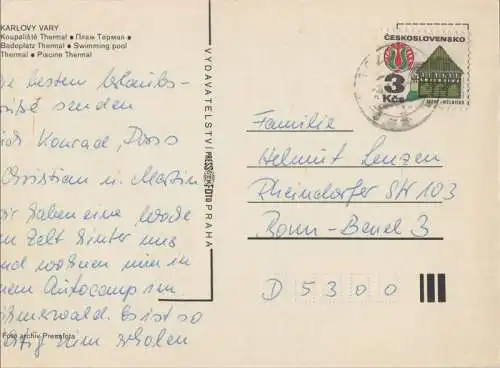 KARLOVY VARY
Koupaliště Thermal • Плаж Термал •
Badeplatz Thermal • Swimming pool
Thermal • Piscine Thermal
e besten Urlaubs-
grüße senden
Konrad, Doss
Christian u. Martin
wir haben eine Woche
Zelt hinter uns
und wohnen nun in
einem Autocamp im
Böhmerwald. Es ist so
richtig zum erholen
Foto archiv Pressfoto
VYDAVATELSTVÍ PRESSFOTO PRAHA
ČESKOSLOVENSKO
3
Kčs
Familie
Helmut Lenzen
Rheindorfer Str 103
Bonn-Beuel 3
D 5300